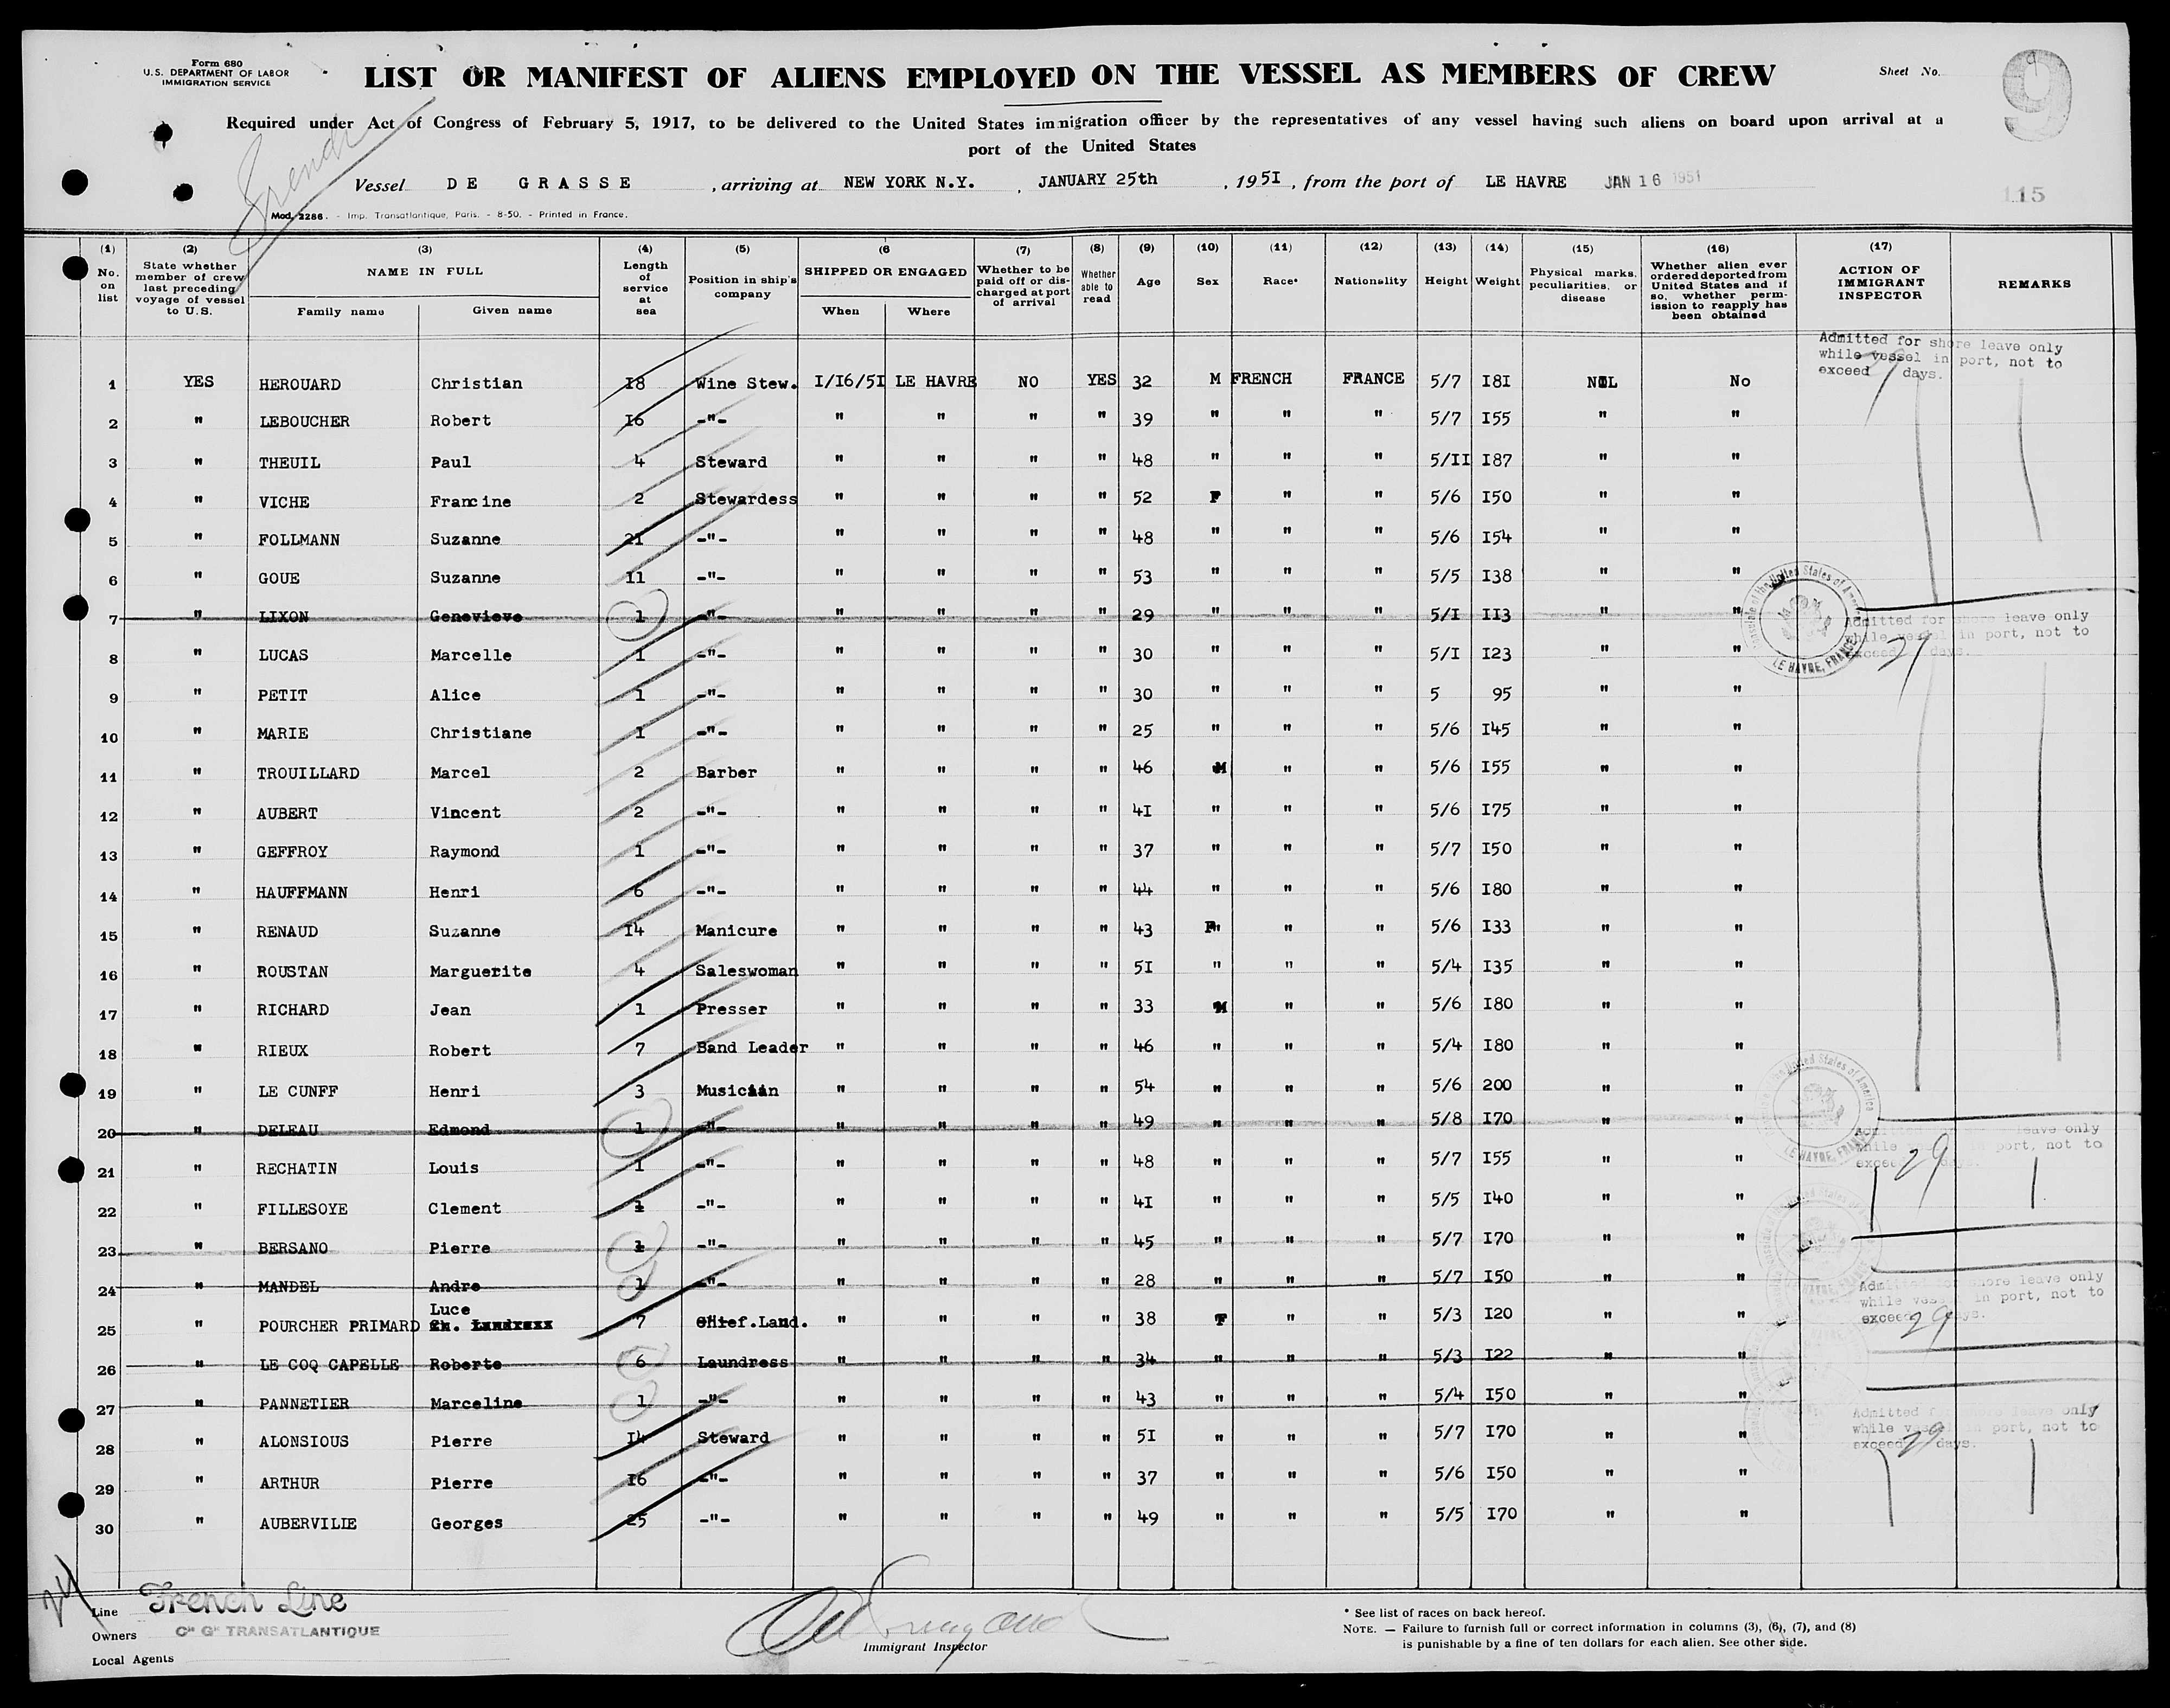 Form 680
U.S. DEPARTMENT OF LABOR
IMMIGRATION SERVICE
LIST OR MANIFEST OF ALIENS EMPLOYED ON THE VESSEL AS MEMBERS OF CREW
Sheet No.
9
Required under Act of Congress of February 5, 1917, to be delivered to the United States immigration officer by the representatives of any vessel having such aliens on board upon arrival at a
port of the United States
French
Vessel DE GRASSE , arriving at NEW YORK N.Y. , JANUARY 25th , 195I , from the port of LE HAVRE JAN 16 1951
115
Mod. 2286. - Imp. Transatlantique, Paris. - 8-50. - Printed in France.
(1) (2) (3) (4) (5) (6 (7) (8) (9) (10) (11) (12) (13) (14) (15) (16) (17)
No. on list
State whether member of crew last preceding voyage of vessel to U.S.
NAME IN FULL
Family name Given name
Length of service at sea
Position in ship's company
SHIPPED OR ENGAGED
When Where
Whether to be paid off or discharged at port of arrival
Whether able to read
Age Sex Race* Nationality Height Weight
Physical marks, peculiarities, or disease
Whether alien ever ordered deported from United States and if so, whether permission to reapply has been obtained
ACTION OF IMMIGRANT INSPECTOR
REMARKS
Admitted for shore leave only
while vessel in port, not to
exceed 29 days.
1 YES HEROUARD Christian I8 Wine Stew. I/I6/5I LE HAVRE NO YES 32 M FRENCH FRANCE 5/7 I8I NIL No
2 " LEBOUCHER Robert I6 -"- " " " " 39 " " " 5/7 I55 " "
3 " THEUIL Paul 4 Steward " " " " 48 " " " 5/II I87 " "
4 " VICHE Francine 2 Stewardess " " " " 52 F " " 5/6 I50 " "
5 " FOLLMANN Suzanne 21 -"- " " " " 48 " " " 5/6 I54 " "
6 " GOUE Suzanne II -"- " " " " 53 " " " 5/5 I38 " "
7 " LIXON Genevieve 1 -"- " " " " 29 " " " 5/I II3 " "
Admitted for shore leave only
while vessel in port, not to
exceed 29 days.
LE HAVRE, FRANCE
8 " LUCAS Marcelle 1 -"- " " " " 30 " " " 5/I I23 " "
9 " PETIT Alice 1 -"- " " " " 30 " " " 5 95 " "
10 " MARIE Christiane 1 -"- " " " " 25 " " " 5/6 I45 " "
11 " TROUILLARD Marcel 2 Barber " " " " 46 M " " 5/6 I55 " "
12 " AUBERT Vincent 2 -"- " " " " 4I " " " 5/6 I75 " "
13 " GEFFROY Raymond 1 -"- " " " " 37 " " " 5/7 I50 " "
14 " HAUFFMANN Henri 6 -"- " " " " 44 " " " 5/6 I80 " "
15 " RENAUD Suzanne I4 Manicure " " " " 43 F " " 5/6 I33 " "
16 " ROUSTAN Marguerite 4 Saleswoman " " " " 5I " " " 5/4 I35 " "
17 " RICHARD Jean 1 Presser " " " " 33 M " " 5/6 I80 " "
18 " RIEUX Robert 7 Band Leader " " " " 46 " " " 5/4 I80 " "
19 " LE CUNFF Henri 3 Musician " " " " 54 " " " 5/6 200 " "
20 " DELEAU Edmond 1 -"- " " " " 49 " " " 5/8 I70 " "
leave only
while in port, not to
exceed 29 days.
21 " RECHATIN Louis 1 -"- " " " " 48 " " " 5/7 I55 " "
22 " FILLESOYE Clement 1 -"- " " " " 4I " " " 5/5 I40 " "
23 " BERSANO Pierre 1 -"- " " " " 45 " " " 5/7 I70 " "
24 " MANDEL Andre 1 -"- " " " " 28 " " " 5/7 I50 " "
Admitted for shore leave only
while vessel in port, not to
exceed 29 days.
Luce
25 " POURCHER PRIMARD 7 Chief.Laund. " " " " 38 F " " 5/3 I20 " "
26 " LE COQ CAPELLE Roberte 6 Laundress " " " " 34 " " " 5/3 I22 " "
27 " PANNETIER Marceline 1 -"- " " " " 43 " " " 5/4 I50 " "
Admitted for shore leave only
while vessel in port, not to
exceed 29 days.
28 " ALONSIOUS Pierre I4 Steward " " " " 5I " " " 5/7 I70 " "
29 " ARTHUR Pierre I6 -"- " " " " 37 " " " 5/6 I50 " "
30 " AUBERVILIE Georges 25 -"- " " " " 49 " " " 5/5 I70 " "
24
Line French Line
Owners Cie Gle TRANSATLANTIQUE
Local Agents
Immigrant Inspector
* See list of races on back hereof.
NOTE. — Failure to furnish full or correct information in columns (3), (6), (7), and (8)
is punishable by a fine of ten dollars for each alien. See other side.